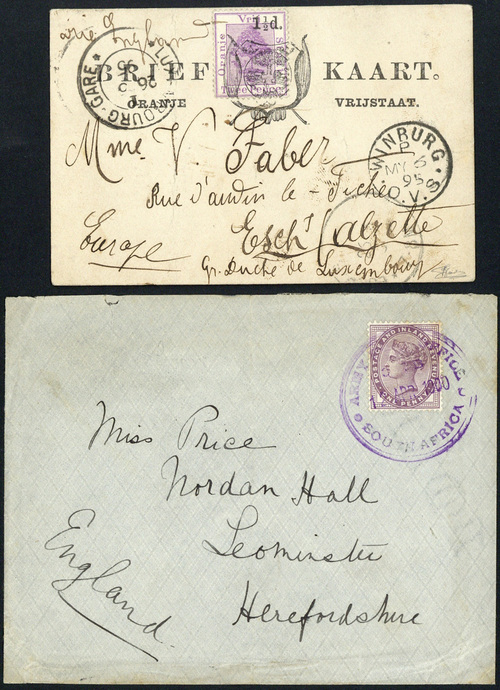 1½d.
Vrij S
Oranje
TWEE PENCE
BRIEF KAART.
ORANJE VRIJSTAAT.
LUXEMBOURG-GARE
Mme. V. Faber
WINBURG
P
MY 6
95
O.V.S.
Rue d'audin le - Fiche
Esch s/ Calzette
Europe
Gr. Duché de Luxembourg
POSTAGE AND INLAND REVENUE
ONE PENNY
ARMY OFFICE
APR 1900
SOUTH AFRICA
Miss Price
Nordan Hall
Leominster
Herefordshire
England